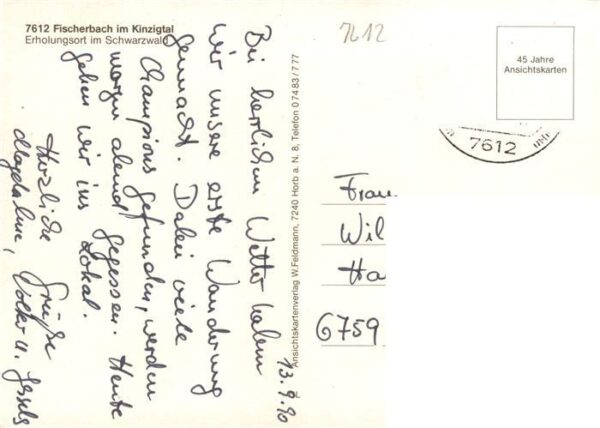 7612 Fischerbach im Kinzigtal
Erholungsort im Schwarzwald
7612
45 Jahre
Ansichtskarten
7612
13.9.90
Bei herrlichem Wetter haben
wir unsere erste Wanderung
gemacht. Dabei viele
Champions gefunden, werden
morgen abend gegessen. Heute
gehen wir ins Lokal.
Herzliche Grüße
Magdalena, Volker u.
Ansichtskartenverlag W. Feldmann, 7240 Horb a. N. 8, Telefon 0 74 83 / 7 77
Frau
Wil
Ha
6759